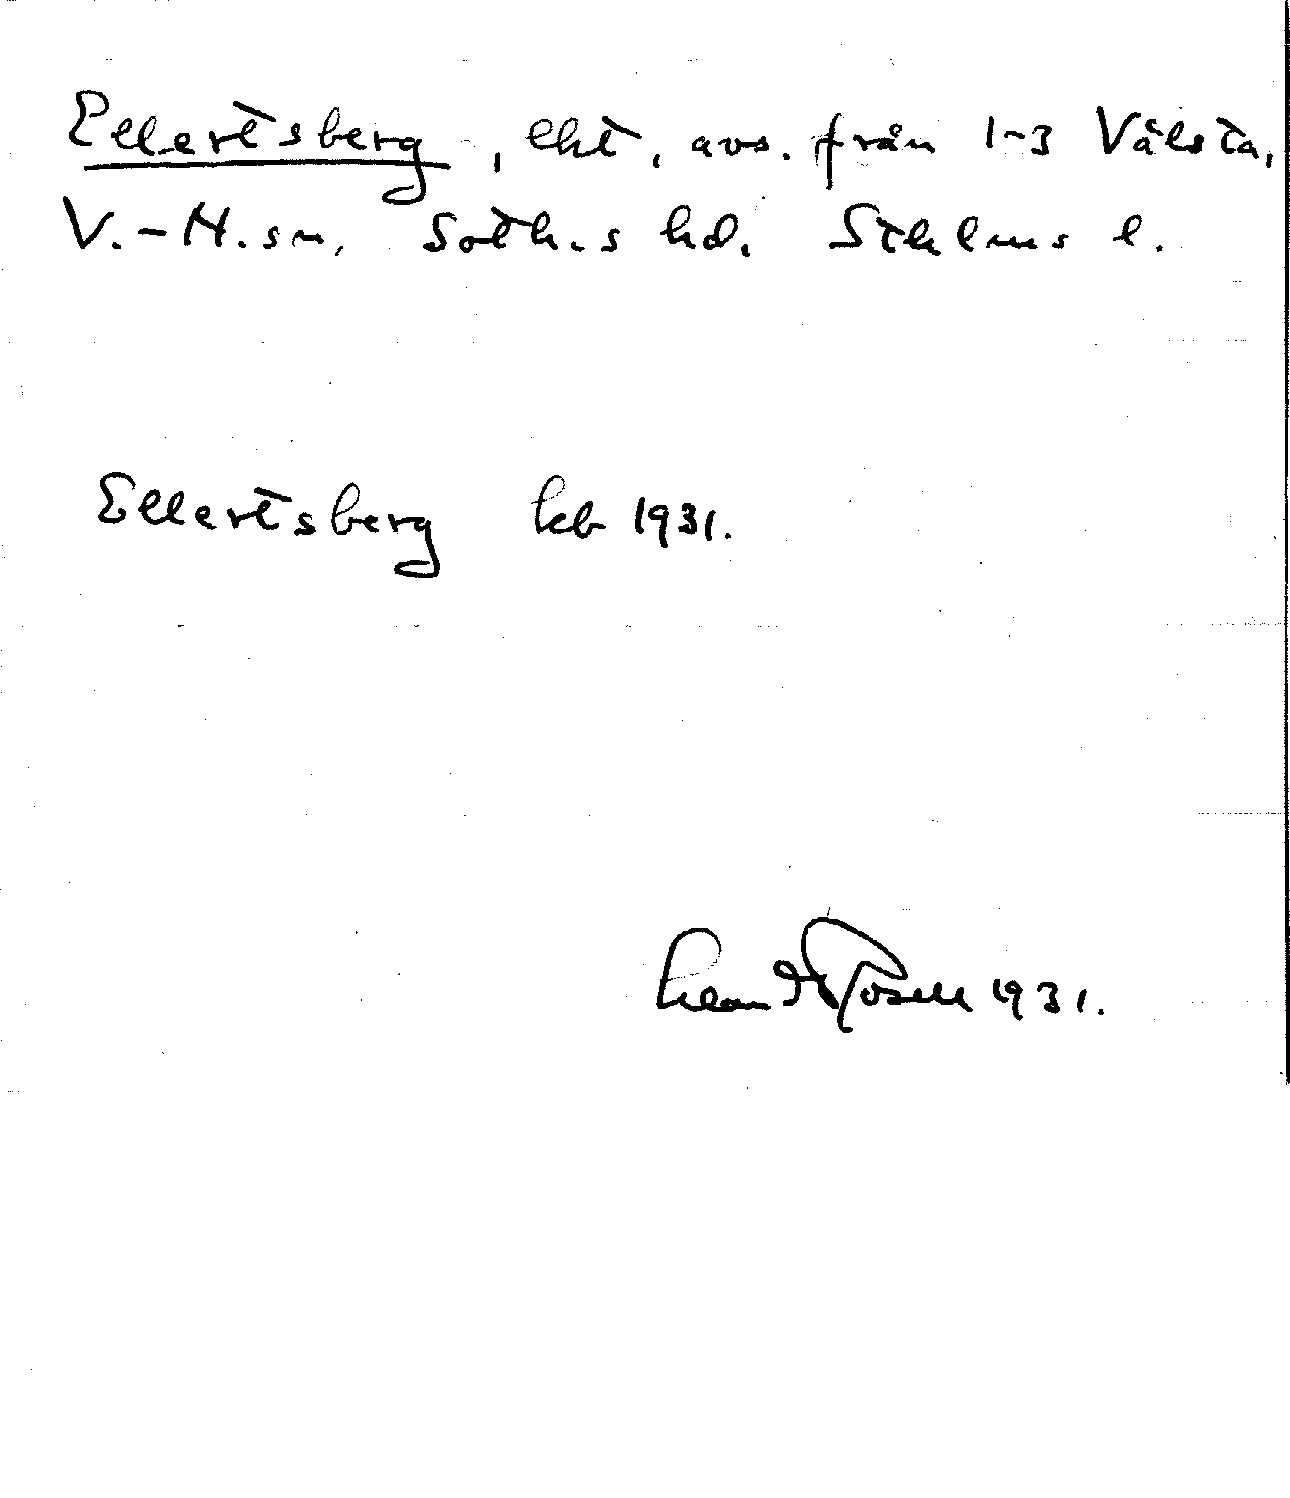 Ellertsberg, lht, avs. från 1-3 Vålsta,
V.-H. sn, Soth.s hd. Sthlms l.
Ellertsberg kb 1931.
1931.